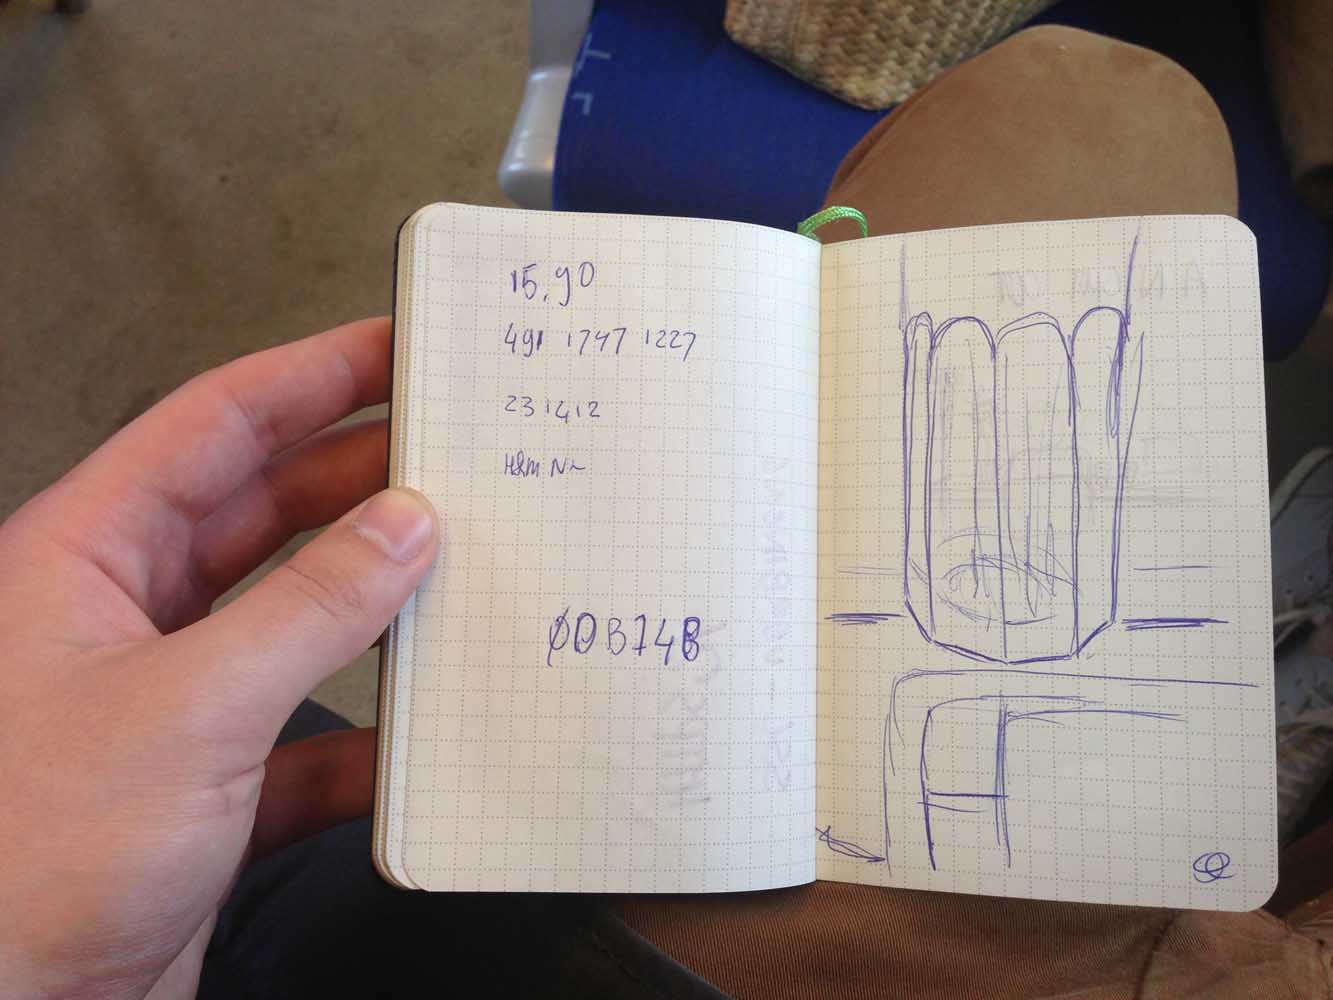 15.90
491 1747 1227
231412
H&M Nr
00B74B